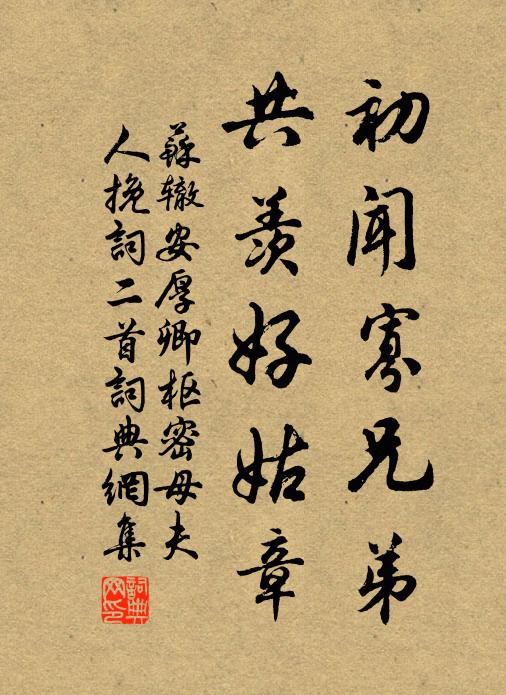 初闻寡兄弟
共羡好姑章
蘇辙安厚卿枢密母夫
人挽詞二首詞典網集
詞典
网印